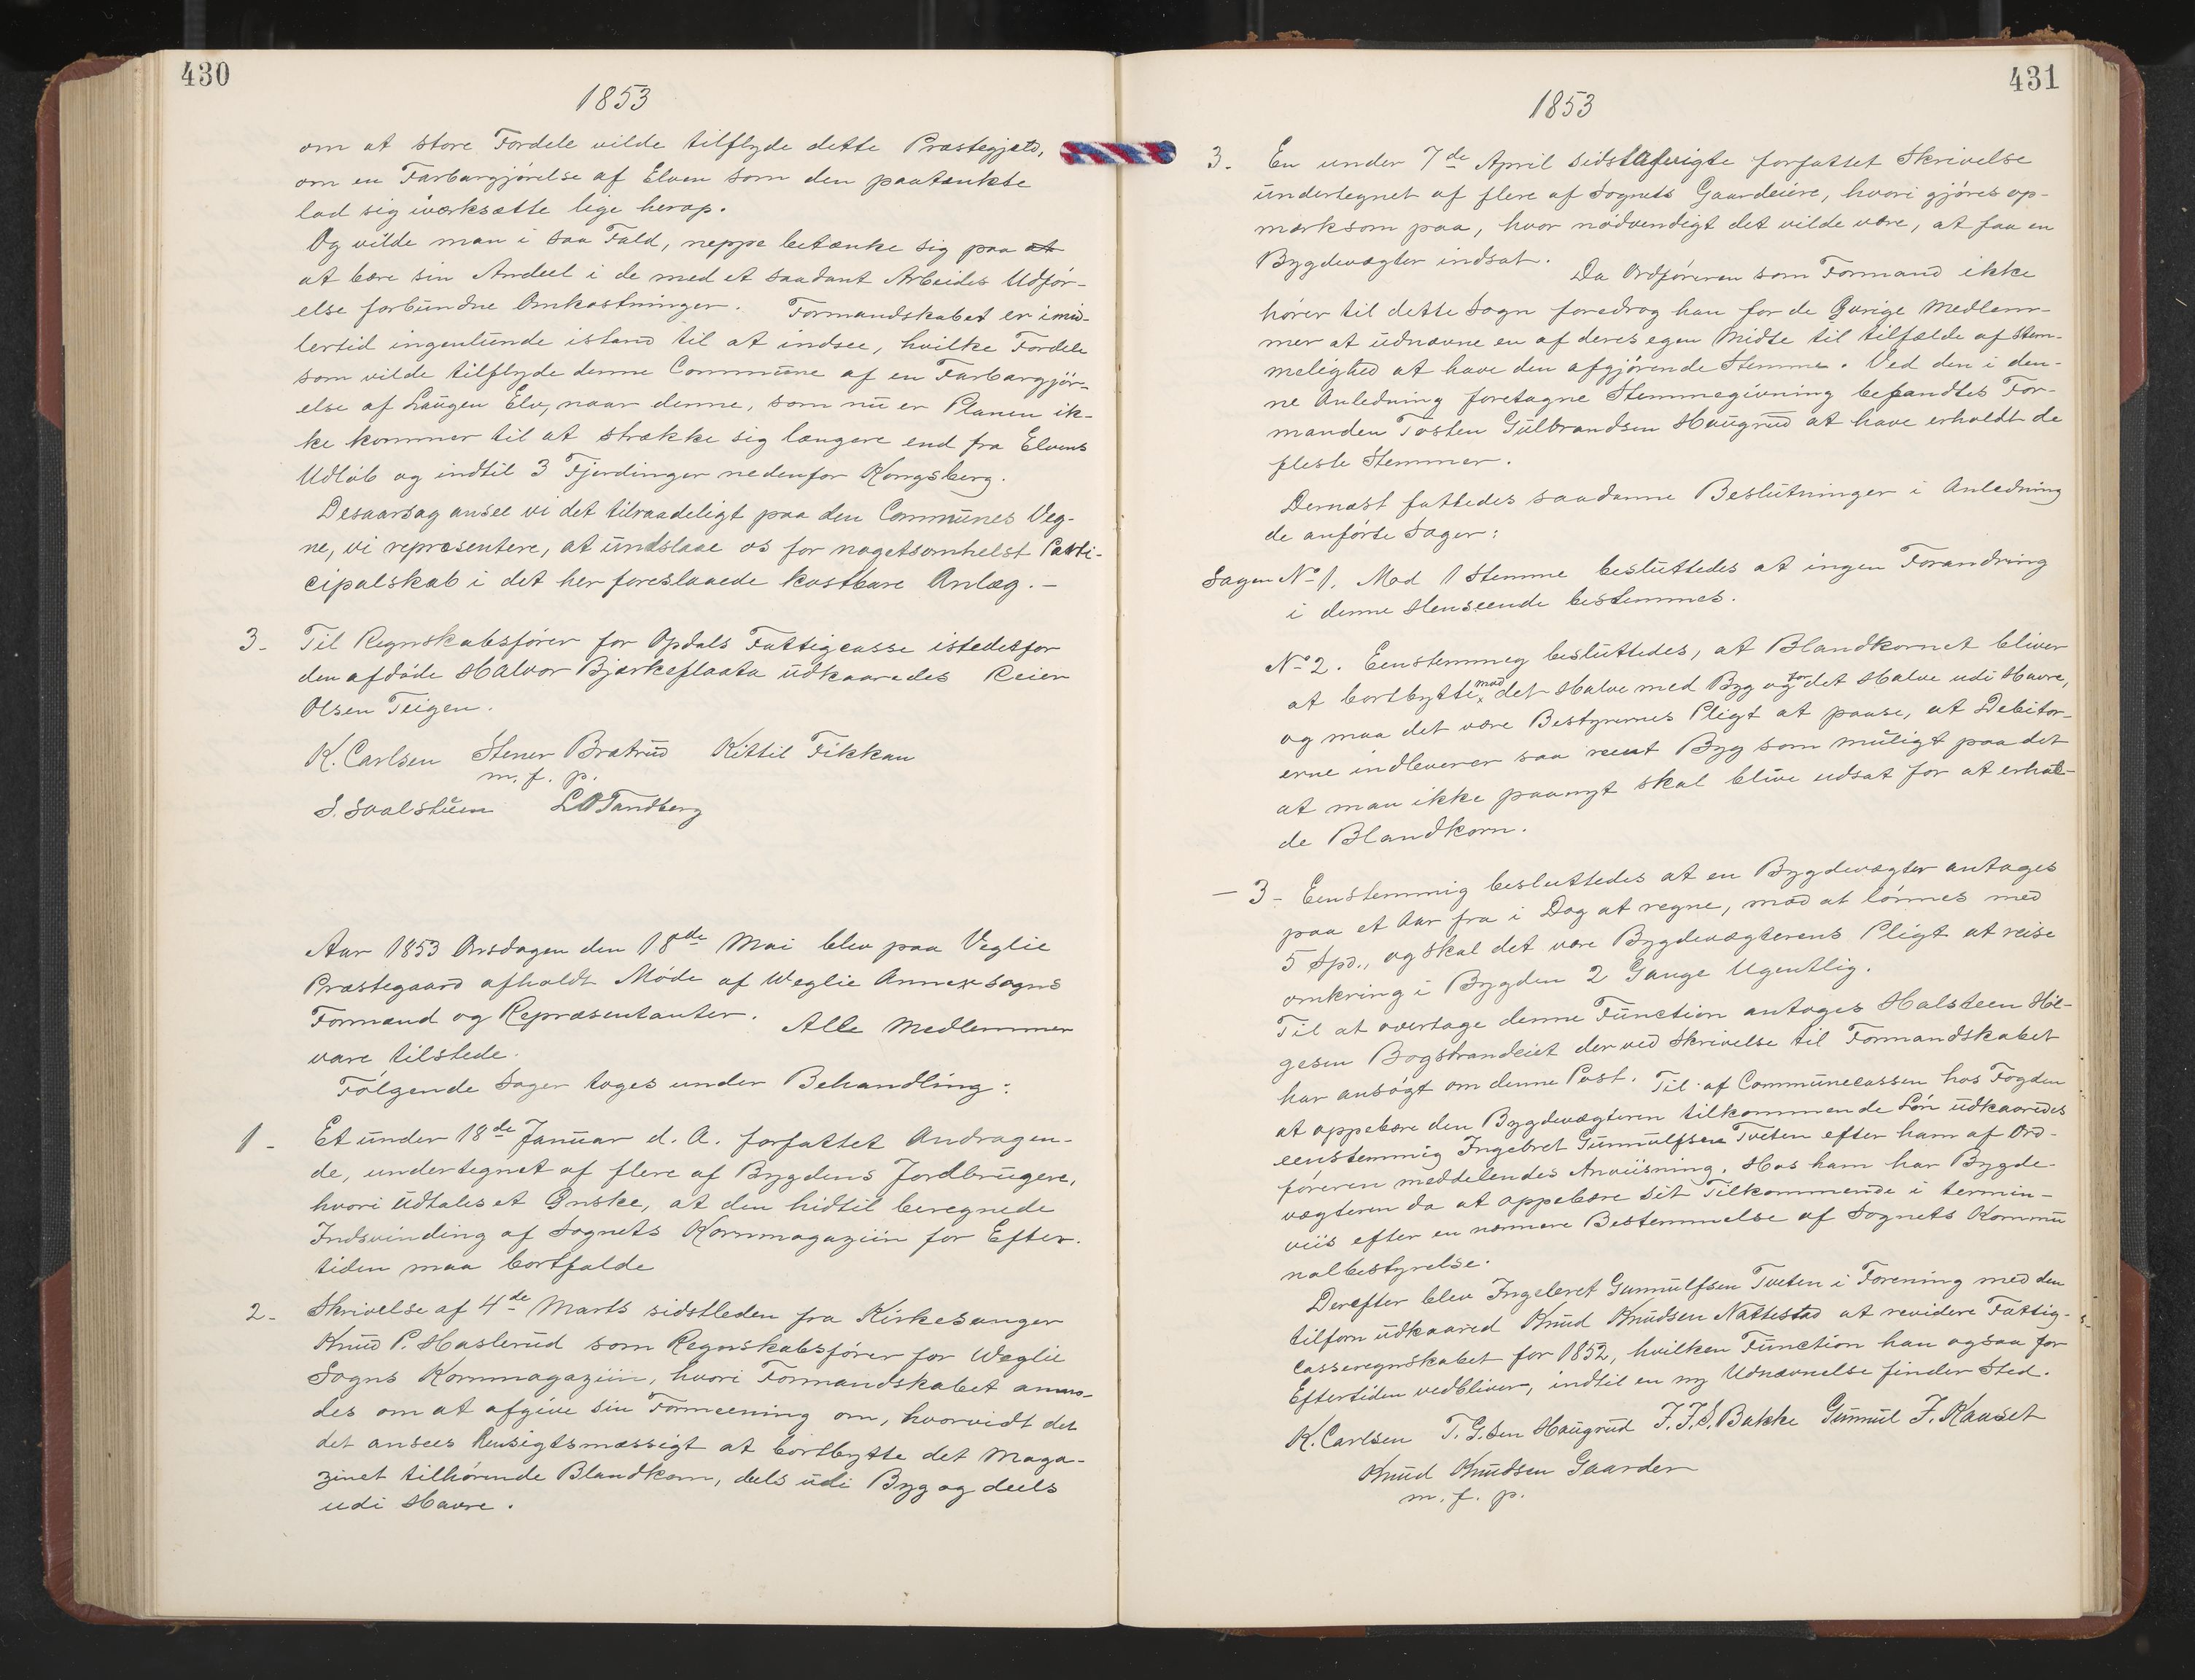 430
1853
om at store Fordele vilde tilflyde dette Præstegjeld,
om en Farbargjörelse af Elven som den paatænkte
lod sig iværksætte lige herop.
Og vilde man i saa Fald, neppe betænke sig paa at
at bære sin Andeel i de med et saadant Arbeides Udför-
else forbundne Omkostninger. Formandskabet er imid-
lertid ingenlunde istand til at indsee, hvilke Fordele
som vilde tilflyde denne Commune af en Farbargjör-
else af Laugen Elv, naar denne, som nu er Planen ik-
ke kommer til at strække sig længere end fra Elvens
Udløb og indtil 3 Fjerdinger nedenfor Kongsberg.
Desaarsag ansee vi det tilraadeligt paa den Communes Veg-
ne, vi repræsentere, at undslaae os for nogetsomhelst Parti-
cipalskab i det her foreslaaede kostbare Anlæg. –
3. Til Regnskabsförer for Opdals Fattigcasse istedetfor
den afdöde Halvor Bjørkeflaata udkaaredes Reier
Olsen Teigen.
K. Carlsen Stener Bratrud Kittil Fikkan
m. f. p.
S. Svalstuen L O Tandberg
Aar 1853 Onsdagen den 18de Mai blev paa Veglie
Præstegaard afholdt Möde af Weglie Annexsogns
Formænd og Repræsentanter. Alle Medlemmer
vare tilstede.
Fölgende Sager toges under Behandling:
1 - Et under 18de Januar d. A. forfattet Andragen-
de, undertegnet af flere af Bygdens Jordbrugere,
hvori udtales et Ønske, at den hidtil beregnede
Indsvinding af Sognets Kornmagaziin for Efter-
tiden maa bortfalde
2 - Skrivelse af 4de Marts sidstleden fra Kirkesanger
Knud P. Haslerud som Regnskabsförer for Weglie
Sogns Kornmagaziin, hvori Formandskabet anmo-
des om at afgive sin Formeening om, hvorvidt det
det ansees Hensigtsmæssigt at bortbytte det Maga-
zinet tilhörende Blandkorn, deels udi Byg og deels
udi Havre.
431
1853
3. En under 7de April sidstafvigte forfattet Skrivelse
undertegnet af flere af Sognets Gaardeiere, hvori gjöres op-
mærksom paa, hvor nödvendigt det vilde være, at faa en
Bygdevægter indsat. Da Ordföreren som Formand ikke
hörer til dette Sogn foredrog han for de Øvrige Medlem-
mer at udnævne en af deres egen Midte til tilfælde af Stem-
melighed at have den afgjörende Stemme. Ved den i den-
ne Anledning foretagne Stemmegivning befandtes For-
manden Tosten Gulbrandsen Haugrud at have erholdt de
fleste Stemmer.
Dernæst fattedes saadanne Beslutninger i Anledning
de anförte Sager:
Sagen No 1. Mod 1 Stemme besluttedes at ingen Forandring
i denne Henseende bestemmes.
No 2. Eenstemmig besluttedes, at Blandkornet bliver
at bortbytte mod det Halve med Byg og for det Halve udi Havre,
og maa det være Bestyrernes Pligt at paase, at Debitor-
erne indleverer saa reent Byg som muligt paa det
at man ikke paanyt skal blive udsat for at erhol-
de Blandkorn.
– 3 - Eenstemmig besluttedes at en Bygdevægter antages
paa et Aar fra i Dag at regne, mod at lönnes med
5 Spd., og skal det være Bygdevægterens Pligt at reise
omkring i Bygden 2 Gange Ugentlig.
Til at overtage denne Function antages Halsteen Hel-
gesen Bogstrandeiet der ved Skrivelse til Formandskabet
har ansögt om denne Post. Til af Communecassen hos Fogden
at oppebære den Bygdevægteren tilkommende Lön udkaaredes
eenstemmig Ingebret Gunnulfsen Tveten efter ham af Ord-
föreren meddelendes Anviisning. Hos ham har Bygde-
vægteren da at oppebære sit Tilkommende i termin-
viis efter en nærmere Bestemmelse af Sognets Kommu
nalbestyrelse.
Derefter blev Ingebret Gunnulfsen Tveten i Forening med den
tilforn udkaared Knud Knudsen Nattestad at revidere Fattig-
casseregnskabet for 1852, hvilken Function han ogsaa for
Eftertiden vedbliver, indtil en ny Udnævnelse finder Sted.
K. Carlsen T. G. Sen Haugrud J. J. S. Bakke Gunnul J. Kauset
Knud Knudsen Gaarder
m. f. p.